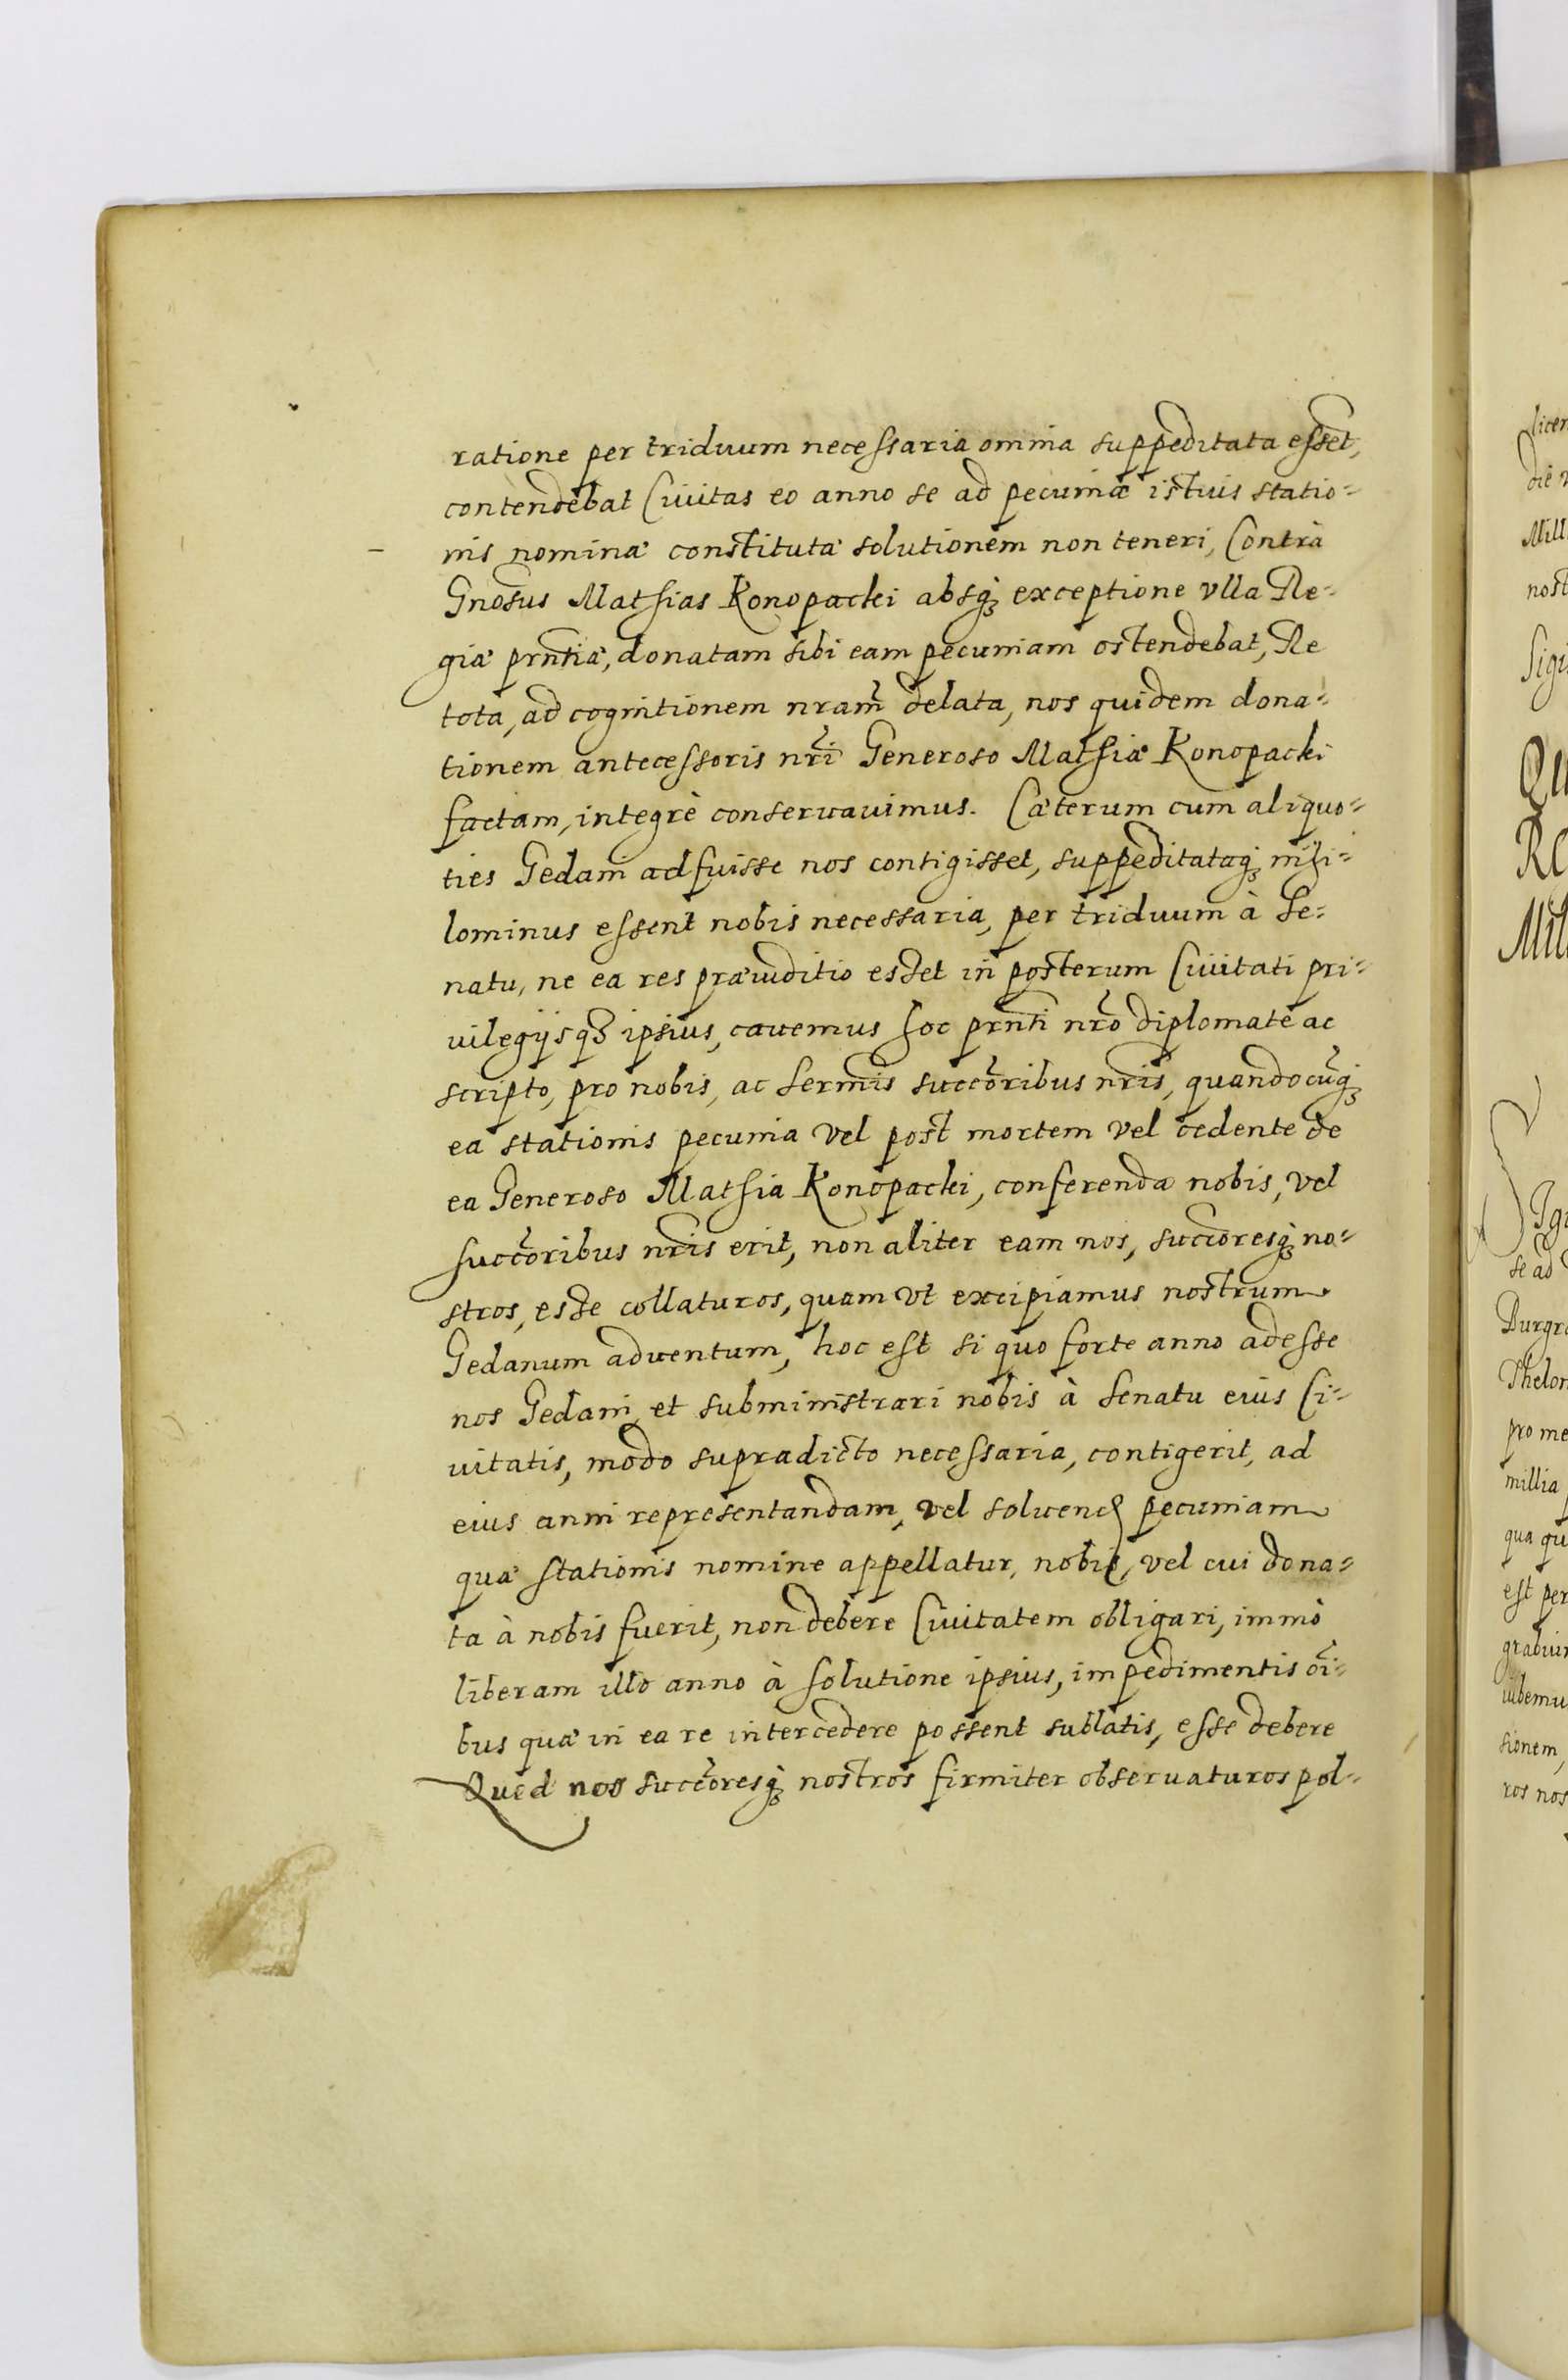 ratione per triduum necessaria omnia suppeditata esset,
contendebat Ciuitas eo anno se ad pecuniæ istuis statio=
nis nominæ constitutæ solutionem non teneri, Contrà
Gnosus Mathias Konopacki absq; exceptione vlla Re=
giæ prntiæ, donatam sibi eam pecuniam ostendebat, Re
tota, ad cognitionem nram delata, nos quidem dona=
tionem antecessoris nri Generoso Mathiæ Konopacki
factam, integrè conseruauimus. Cæterum cum aliquo=
ties Gedani adfuisse nos contigisset, suppeditataq; nihi=
lominus essent nobis necessaria, per triduum à Se=
natu, ne ea res præiuditio esset in posterum Ciuitati pri=
uilegijsq3 ipsius, cauemus hoc prnti nro diplomate ac
scripto, pro nobis, ac Sermis succoribus nris, quandocuq;
ea stationis pecunia vel post mortem vel cedente de
ea Generoso Mathia Konopacki, conferenda nobis, vel
succoribus nris erit, non aliter eam nos, succoresq; no=
stros, esse collaturos, quam vt excipiamus nostrum
Gedanum aduentum, hoc est si quo forte anno adesse
nos Gedani, et subministrari nobis à Senatu eius Ci=
uitatis, modo supradicto necessaria, contigerit, ad
eius anni representandam, vel soluend pecuniam
quæ stationis nomine appellatur, nobis, vel cui dona=
ta à nobis fuerit, non debere Ciuitatem obligari, immò
liberam illo anno à solutione ipsius, impedimentis oi=
bus quæ in ea re intercedere possent sublatis, esse debere
Quod nos succoresq; nostros firmiter obseruaturos pol=